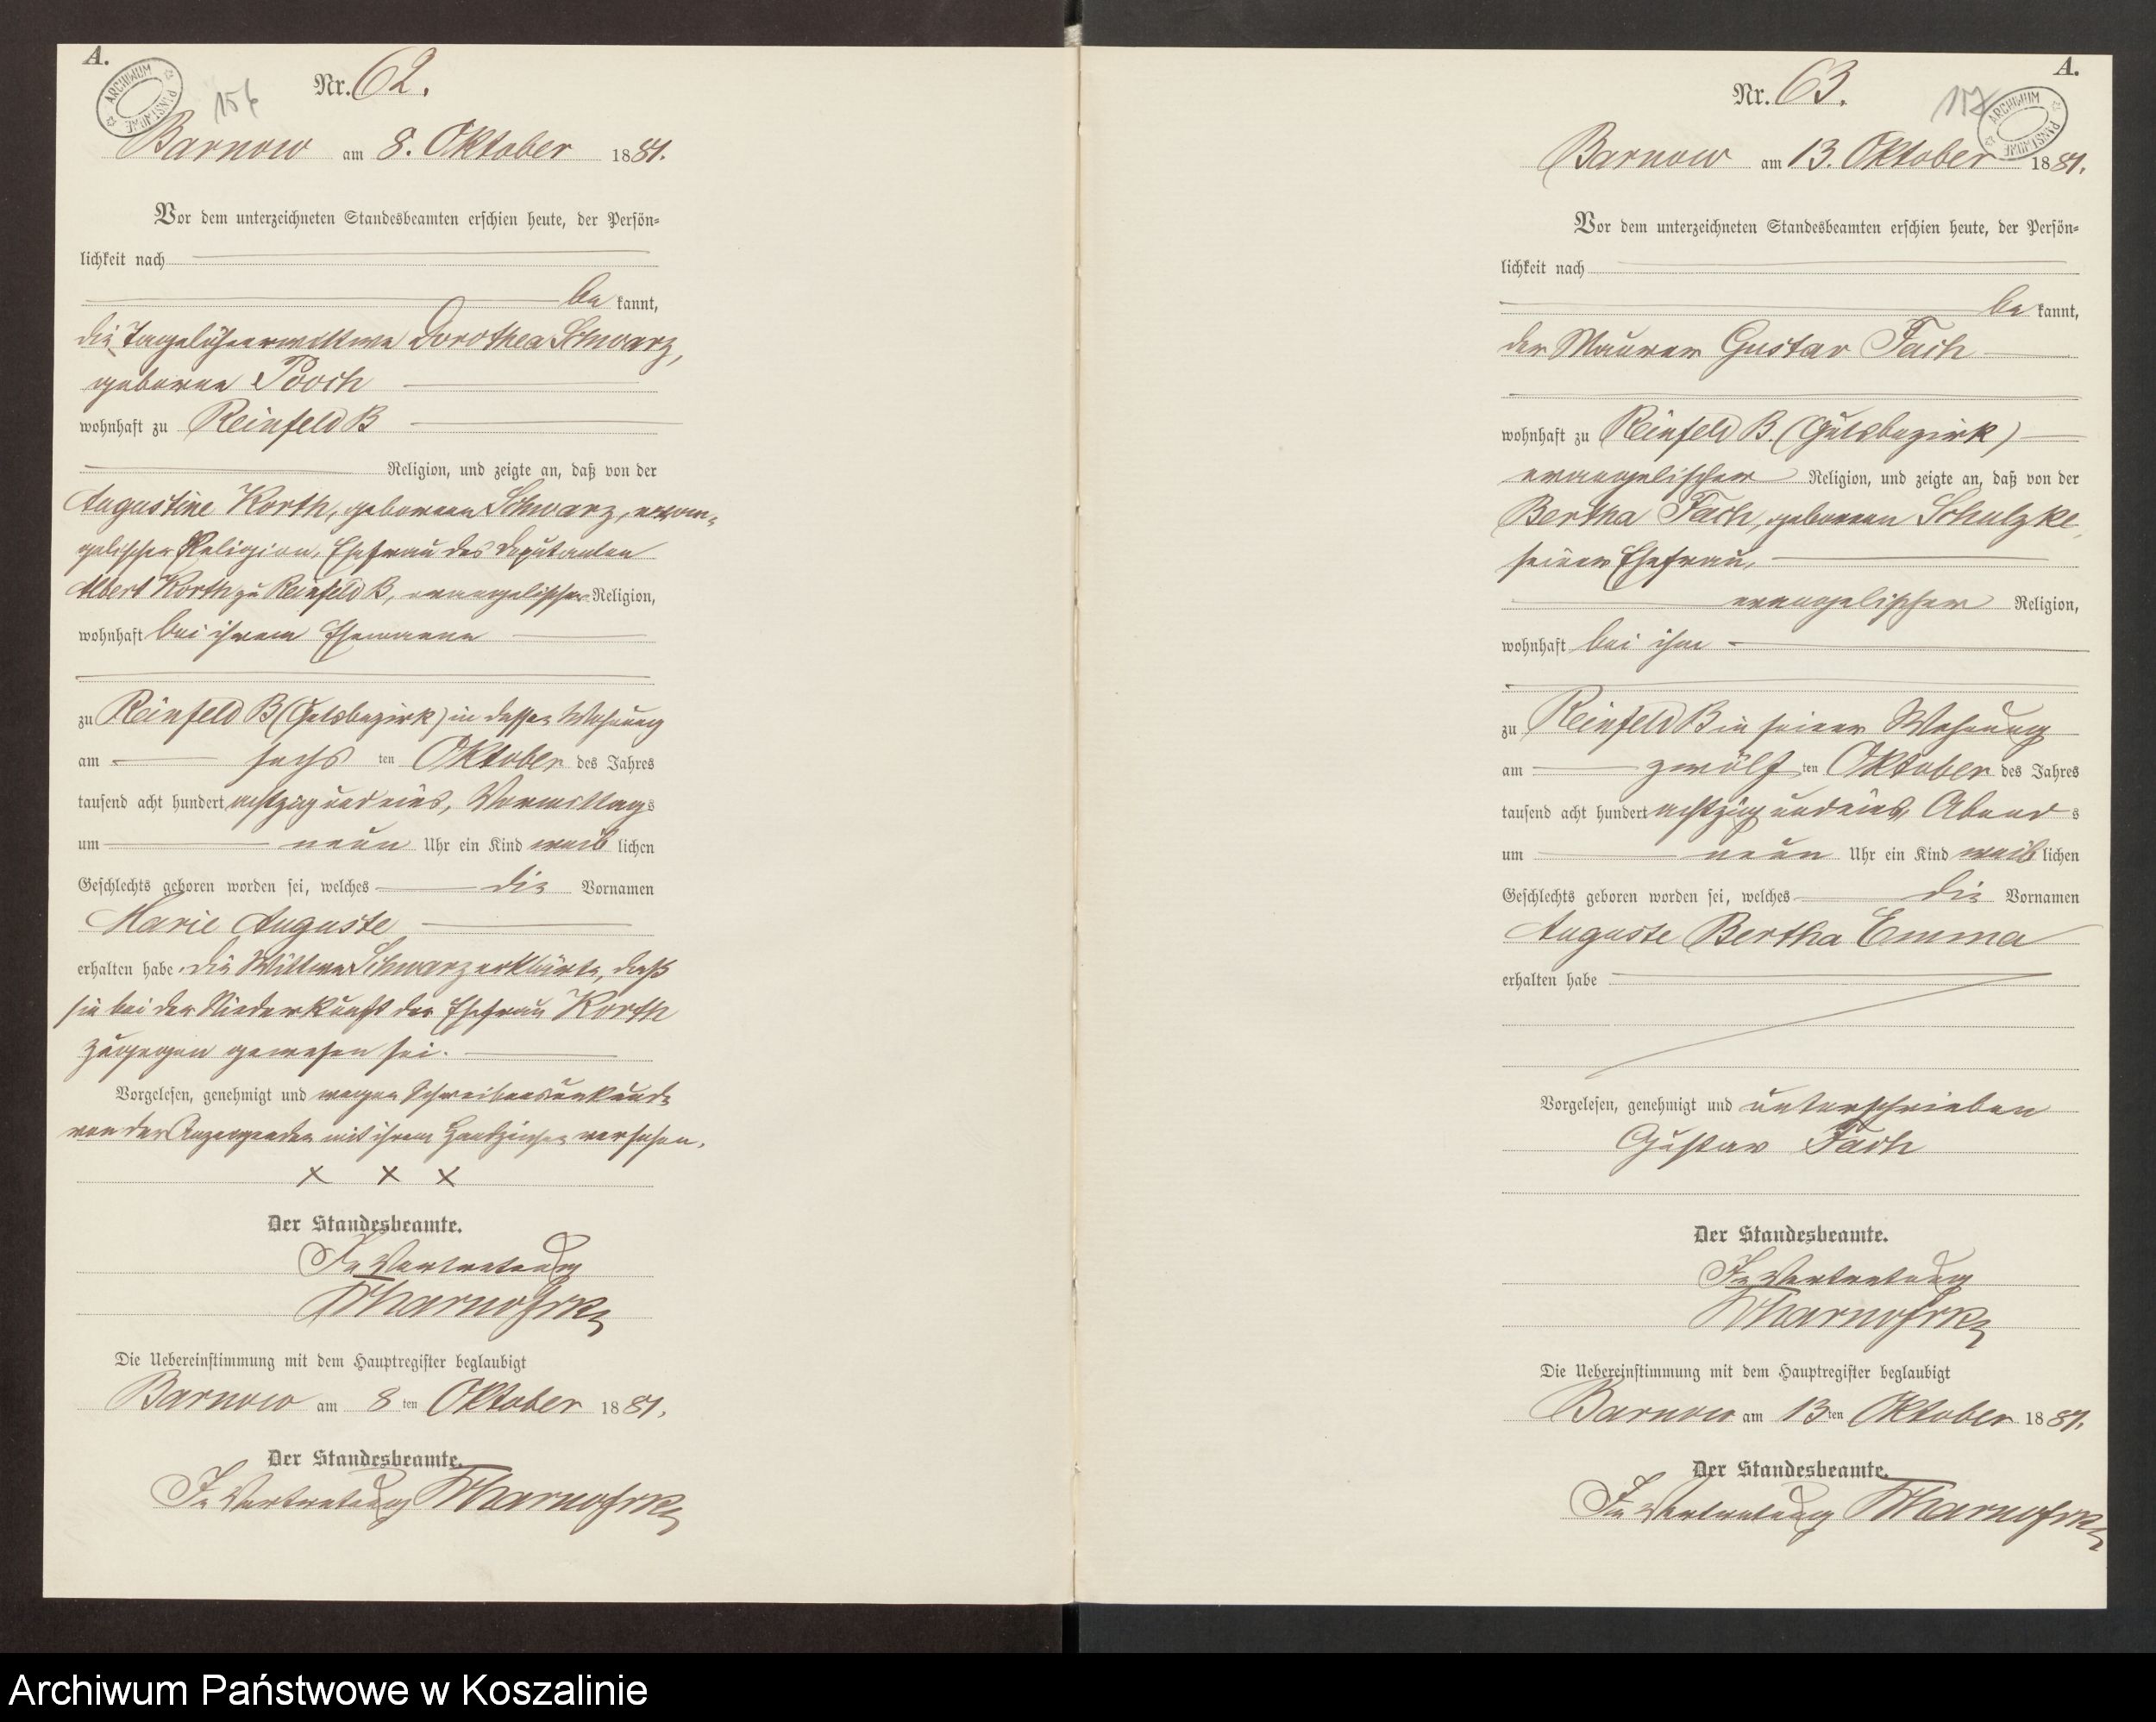 A.
ARCHIWUM PAŃSTWOWE
156
Nr. 62.
Barnow am 8. Oktober 1881.
Vor dem unterzeichneten Standesbeamten erschien heute, der Persön-
lichkeit nach
be kannt,
die Tagelöhnerwittwe Dorothea Schwarz,
geborene Pooch
wohnhaft zu Reinfeld B
Religion, und zeigte an, daß von der
Augustine Korth, geborenen Schwarz, evan-
gelischer Religion, Ehefrau des Deputanten
Albert Korth zu Reinfeld B, evangelischer Religion,
wohnhaft bei ihrem Ehemanne
zu Reinfeld B (Gutsbezirk) in dessen Wohnung
am sechs ten Oktober des Jahres
tausend acht hundert achtzig und eins, Vormittags
um neun Uhr ein Kind weib lichen
Geschlechts geboren worden sei, welches die Vornamen
Marie Auguste
erhalten habe. Die Wittwe Schwarz erklärte, daß
sie bei der Niederkunft der Ehefrau Korth
zugegen gewesen sei.
Vorgelesen, genehmigt und wegen Schreibensunkunde
von der Anzeigenden mit ihrem Handzeichen versehen.
x x x
Der Standesbeamte.
In Vertretung
Die Uebereinstimmung mit dem Hauptregister beglaubigt
Barnow am 8 ten Oktober 1881.
Der Standesbeamte.
In Vertretung
A.
ARCHIWUM PAŃSTWOWE
157
Nr. 63.
Barnow am 13. Oktober 1881.
Vor dem unterzeichneten Standesbeamten erschien heute, der Persön-
lichkeit nach
be kannt,
der Maurer Gustav Fach
wohnhaft zu Reinfeld B. (Gutsbezirk)
evangelischer Religion, und zeigte an, daß von der
Bertha Fach, geborenen Schulzke,
seiner Ehefrau,
evangelischer Religion,
wohnhaft bei ihm
zu Reinfeld B in seiner Wohnung
am zwölf ten Oktober des Jahres
tausend acht hundert achtzig und eins, Abend s
um neun Uhr ein Kind weib lichen
Geschlechts geboren worden sei, welches die Vornamen
Auguste Bertha Emma
erhalten habe
Vorgelesen, genehmigt und unterschrieben
Gustav Fach
Der Standesbeamte.
In Vertretung
Die Uebereinstimmung mit dem Hauptregister beglaubigt
Barnow am 13 ten Oktober 1881.
Der Standesbeamte.
In Vertretung
Archiwum Państwowe w Koszalinie